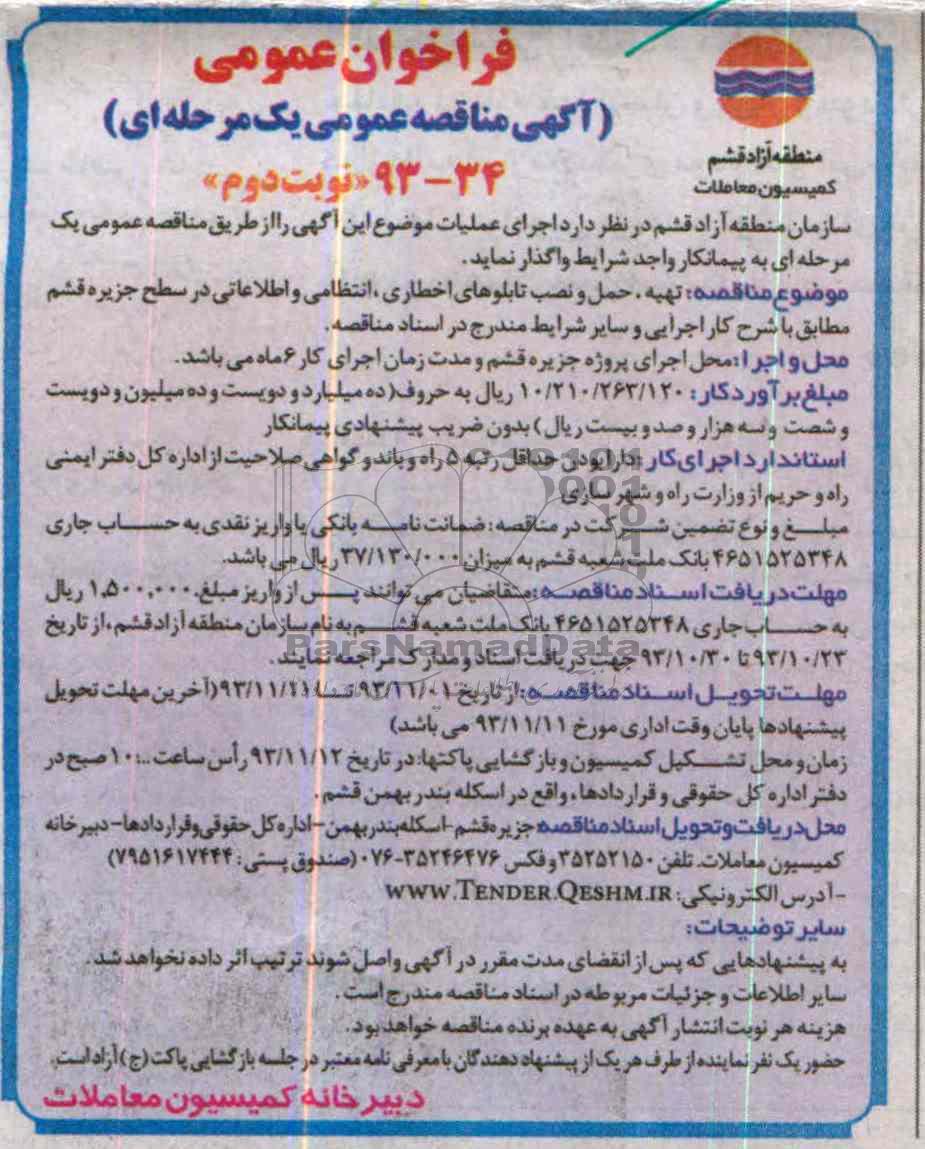 فراخوان عمومی
(آگهی مناقصه عمومی یک مرحله ای)
۹۳-۳۴ «نوبت دوم»
منطقه آزاد قشم
کمیسیون معاملات
سازمان منطقه آزاد قشم در نظر دارد اجرای عملیات موضوع این آگهی را از طریق مناقصه عمومی یک
مرحله ای به پیمانکار واجد شرایط واگذار نماید.
موضوع مناقصه: تهیه، حمل و نصب تابلوهای اخطاری، انتظامی و اطلاعاتی در سطح جزیره قشم
مطابق با شرح کار اجرایی و سایر شرایط مندرج در اسناد مناقصه.
محل و اجرا: محل اجرای پروژه جزیره قشم و مدت زمان اجرای کار ۶ ماه می باشد.
مبلغ برآورد کار: ۱۰/۲۱۰/۲۶۳/۱۲۰ ریال به حروف (ده میلیارد و دویست و ده میلیون و دویست
و شصت و سه هزار و صد و بیست ریال) بدون ضریب پیشنهادی پیمانکار
استاندارد اجرای کار: دارا بودن حداقل رتبه ۵ راه و باند و گواهی صلاحیت از اداره کل دفتر ایمنی
راه و حریم از وزارت راه و شهر سازی
مبلغ و نوع تضمین شرکت در مناقصه: ضمانت نامه بانکی یا واریز نقدی به حساب جاری
۴۶۵۱۵۲۵۳۴۸ بانک ملت شعبه قشم به میزان ۳۷/۱۳۰/۰۰۰ ریال می باشد.
مهلت دریافت اسناد مناقصه: متقاضیان می توانند پس از واریز مبلغ ۱,۵۰۰,۰۰۰ ریال
به حساب جاری ۴۶۵۱۵۲۵۳۴۸ بانک ملت شعبه قشم به نام سازمان منطقه آزاد قشم، از تاریخ
۹۳/۱۰/۲۳ تا ۹۳/۱۰/۳۰ جهت دریافت اسناد و مدارک مراجعه نمایند.
ParsNamadData
مهلت تحویل اسناد مناقصه: از تاریخ ۹۳/۱۱/۰۱ تا ۹۳/۱۱/۱۱ (آخرین مهلت تحویل
پیشنهادها پایان وقت اداری مورخ ۹۳/۱۱/۱۱ می باشد)
زمان و محل تشکیل کمیسیون و بازگشایی پاکتها: در تاریخ ۹۳/۱۱/۱۲ رأس ساعت ۱۰:۰۰ صبح در
دفتر اداره کل حقوقی و قراردادها، واقع در اسکله بندر بهمن قشم.
محل دریافت و تحویل اسناد مناقصه: جزیره قشم-اسکله بندر بهمن-اداره کل حقوقی و قراردادها-دبیرخانه
کمیسیون معاملات. تلفن ۳۵۲۵۲۱۵۰ و فکس ۳۵۲۴۶۴۷۶-۰۷۶ (صندوق پستی: ۷۹۵۱۶۱۷۴۴۴)
-آدرس الکترونیکی: WWW.TENDER.QESHM.IR
سایر توضیحات:
به پیشنهادهایی که پس از انقضای مدت مقرر در آگهی واصل شوند ترتیب اثر داده نخواهد شد.
سایر اطلاعات و جزئیات مربوطه در اسناد مناقصه مندرج است.
هزینه هر نوبت انتشار آگهی به عهده برنده مناقصه خواهد بود.
حضور یک نفر نماینده از طرف هر یک از پیشنهاد دهندگان با معرفی نامه معتبر در جلسه بازگشایی پاکت (ج) آزاد است.
دبیرخانه کمیسیون معاملات